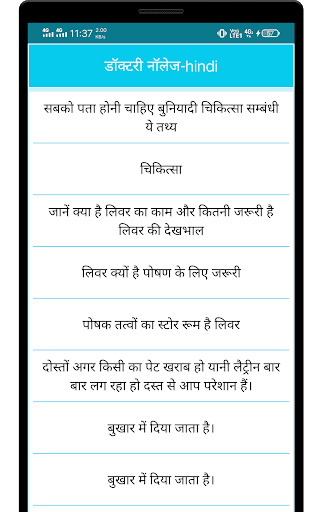 11:37
2.00
KB/s
4G
4G
Vo))
LTE1
4G
57
डॉक्टरी नॉलेज-hindi
सबको पता होनी चाहिए बुनियादी चिकित्सा सम्बंधी
ये तथ्य
चिकित्सा
जानें क्या है लिवर का काम और कितनी जरूरी है
लिवर की देखभाल
लिवर क्यों है पोषण के लिए जरूरी
पोषक तत्वों का स्टोर रूम है लिवर
दोस्तों अगर किसी का पेट खराब हो यानी लैट्रीन बार
बार लग रहा हो दस्त से आप परेशान हैं।
बुखार में दिया जाता है।
बुखार में दिया जाता है।